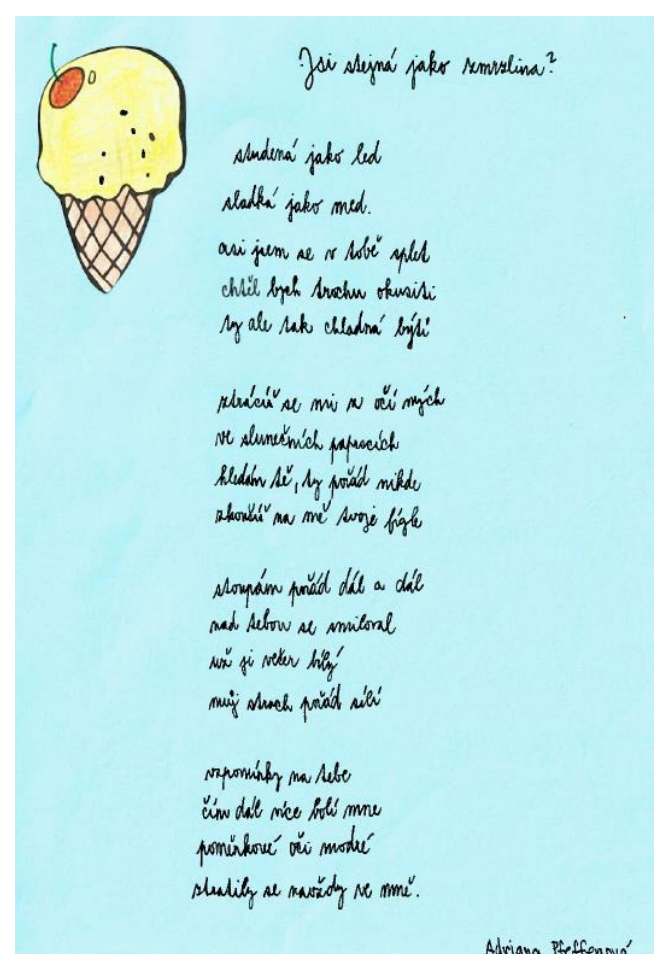 Jsi stejná jako zmrzlina?
studená jako led
sladká jako med.
asi jsem se v tobě splet
chtěl bych trochu okusiti
ty ale tak chladná býti
ztrácíš se mi z očí mých
ve slunečních paprscích
hledám tě, ty pořád nikde
zkoušíš na mě svoje fígle
stoupám pořád dál a dál
nad tebou se smiloval
už ji večer bílý
můj strach pořád sílí
vzpomínky na tebe
čím dál více bolí mne
poměnkové oči modré
ztratily se navždy ve mně.
Adriana